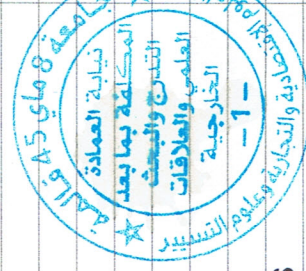 جامعة 8 ماي 45 قالمة
الاقتصادية والتجارية وعلوم التسيير
نيابة العمادة
المكلفة بما بعد
التدرج والبحث
العلمي والعلاقات
الخارجية
-1-